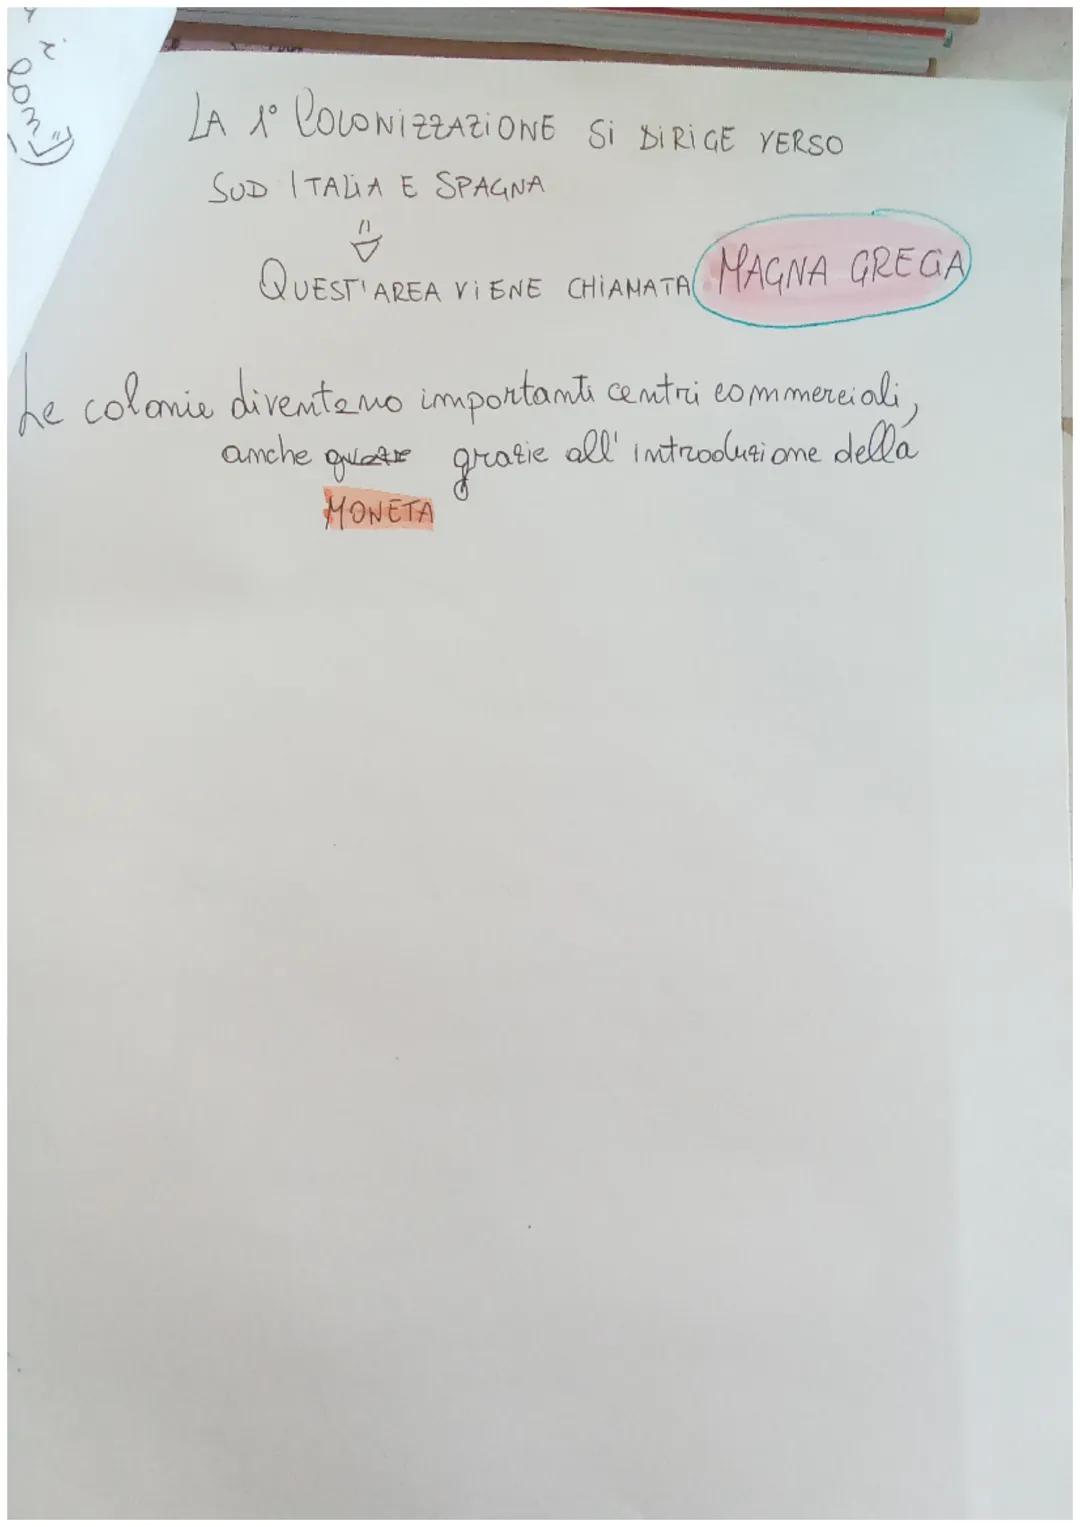 LA 1° COLONIZZAZIONE SI DIRIGE VERSO
SUD ITALIA E SPAGNA
QUEST'AREA VIENE CHIAMATA MAGNA GRECIA
Le colonie diventano importanti centri commerciali,
anche grazie all'introduzione della
MONETA